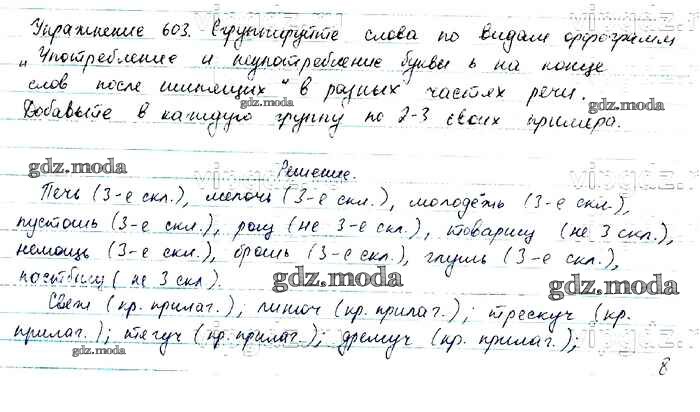 Упражнение 603. Сгруппируйте слова по видам орфограмм
„Употребление и неупотребление буквы ь на конце
слов после шипящих" в разных частях речи.
Добавьте в каждую группу по 2-3 своих примера.
gdz.moda
gdz.moda
gdz.moda
Решение.
Печь (3-е скл.), мелочь (3-е скл.), молодежь (3-е скл.),
пустошь (3-е скл.), рощ (не 3-е скл.), товарищ (не 3 скл.),
немощь (3-е скл.), брошь (3-е скл.), глушь (3-е скл.),
пастбищ (не 3 скл).
gdz.moda
gdz.moda
Свеж (кр. прилаг.); пахуч (кр. прилаг.); трескуч (кр.
прилаг.); тягуч (кр. прилаг.); дремуч (кр. прилаг.);
gdz.moda
8